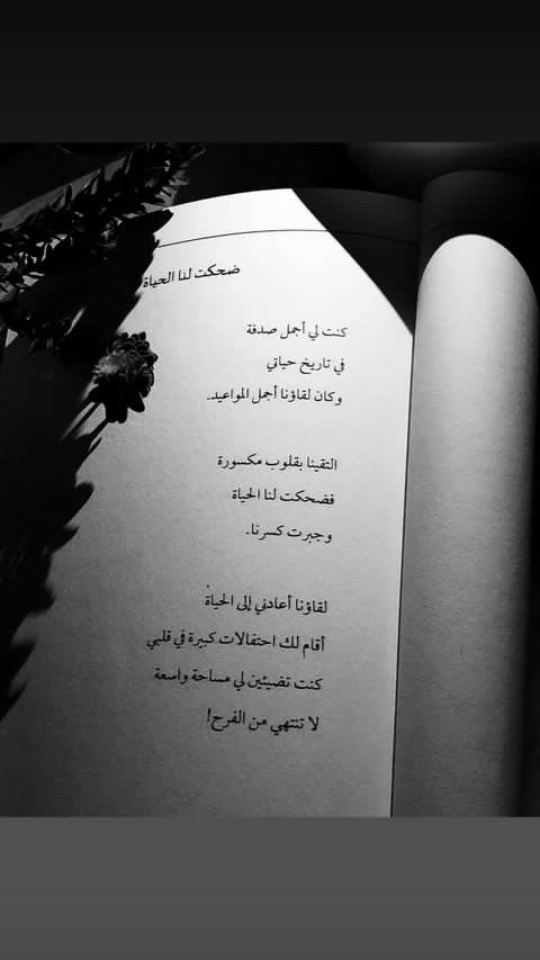 ضحكت لنا الحياة
كنت لي أجمل صدفة
في تاريخ حياتي
وكان لقاؤنا أجمل المواعيد.
التقينا بقلوب مكسورة
فضحكت لنا الحياة
وجبرت كسرنا.
لقاؤنا أعادني إلى الحياة
أقام لك احتفالات كبيرة في قلبي
كنت تضيئين لي مساحة واسعة
لا تنتهي من الفرح!